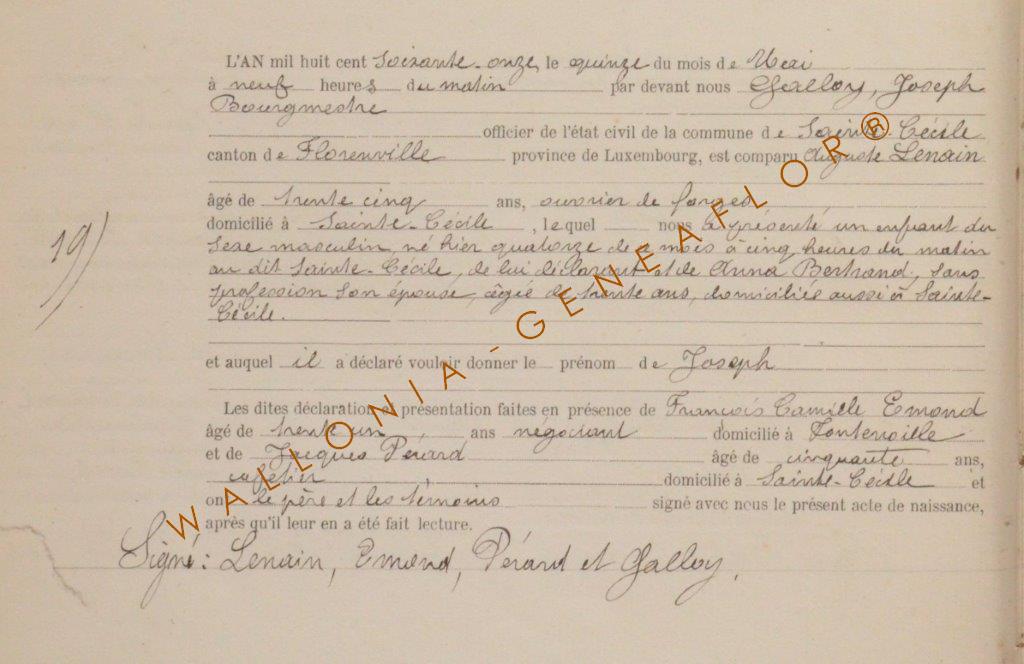 L'AN mil huit cent soixante-onze, le quinze du mois de Mai
à neuf heures du matin par devant nous Galloy, Joseph
Bourgmestre
officier de l'état civil de la commune de Sainte-Cécile
canton de Florenville province de Luxembourg, est comparu Auguste Lenain
âgé de trente cinq ans, ouvrier de forges
domicilié à Sainte-Cécile, lequel nous a présenté un enfant du
sexe masculin, né hier quatorze de ce mois à cinq heures du matin
au dit Sainte-Cécile, de lui déclarant et de Anna Bertrand, sans
profession son épouse, âgée de trente ans, domiciliée aussi à Sainte-
Cécile.
19)
et auquel il a déclaré vouloir donner le prénom de Joseph
Les dites déclaration et présentation faites en présence de François Camille Emond
âgé de trente un ans négociant domicilié à Fontenoille
et de Jacques Pérard âgé de cinquante ans,
cafetier domicilié à Sainte-Cécile et
ont le père et les témoins signé avec nous le présent acte de naissance,
après qu'il leur en a été fait lecture.
Signé: Lenain, Emond, Pérard et Galloy.
WALLONIA-GENEAFLOR®